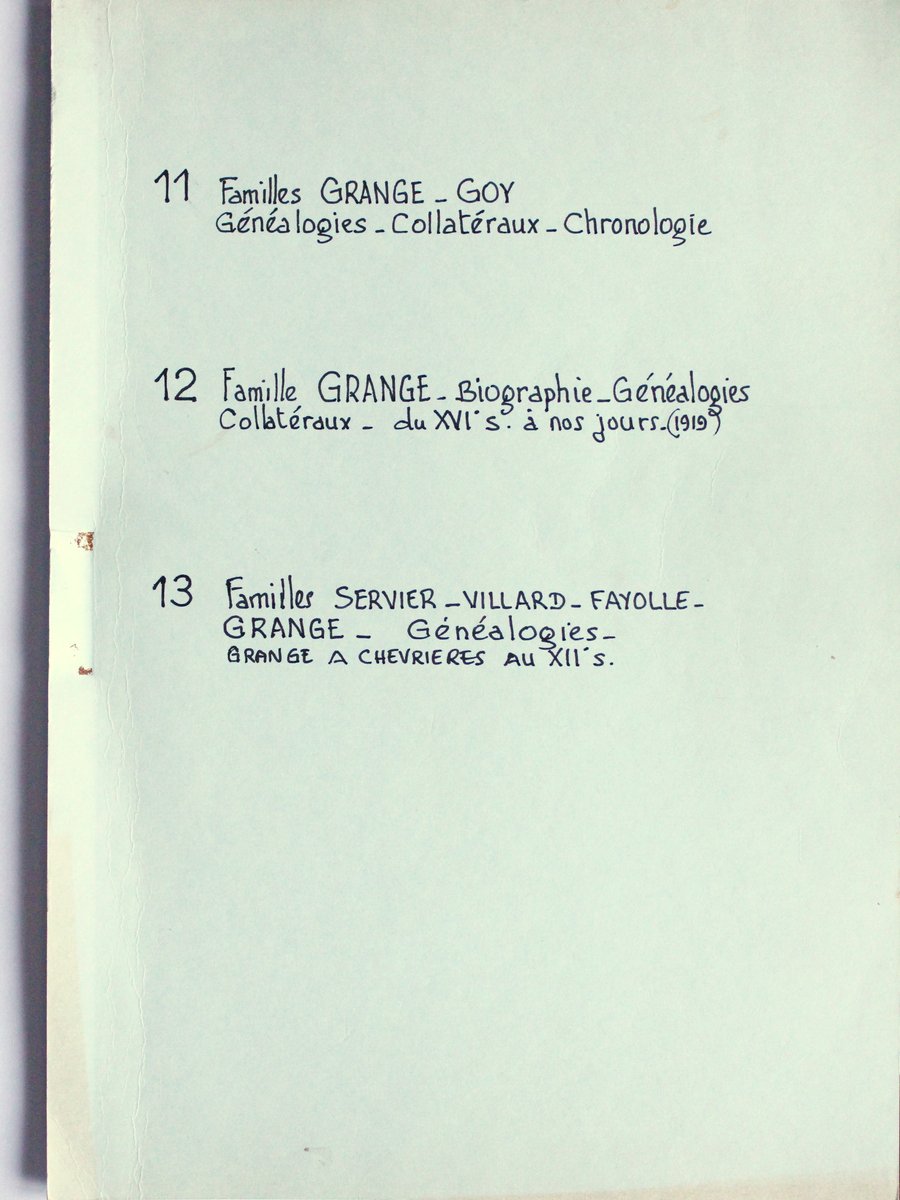 11 Familles GRANGE - GOY
Généalogies - Collatéraux - Chronologie
12 Famille GRANGE - Biographie - Généalogies
Collatéraux - du XVI°s. à nos jours - (1919)
13 Familles SERVIER - VILLARD - FAYOLLE -
GRANGE - Généalogies -
GRANGE A CHEVRIERES AU XII°s.